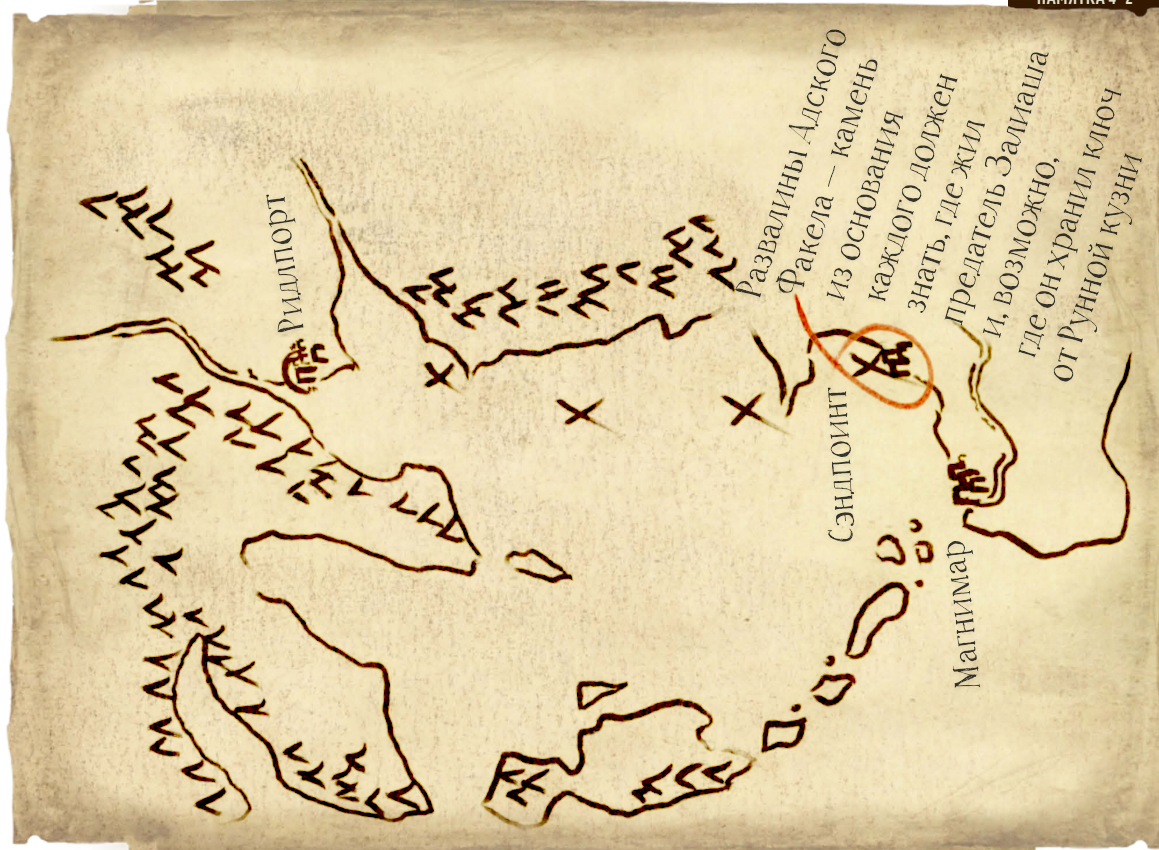 ПАМЯТКА 4-2
Ридлпорт
Развалины Адского
Факела – камень
из основания
каждого должен
знать, где жил
предатель Залиаша
и, возможно,
где он хранил ключ
от Рунной кузни
Сэндпоинт
Магнимар